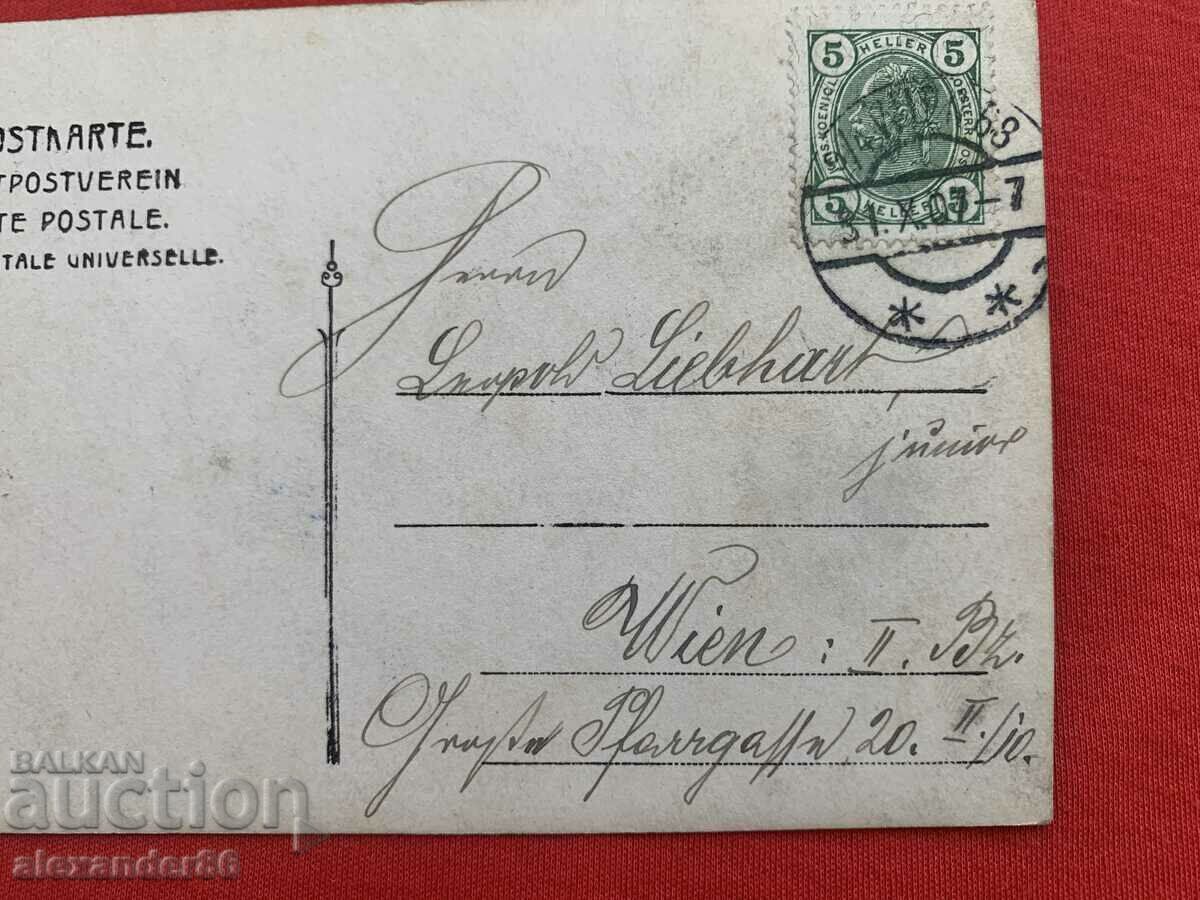 OSTKARTE.
TPOSTVEREIN
TE POSTALE.
TALE UNIVERSELLE.
5 HELLER 5
5 HELLER 5
68
31.X.07-7
* *
Herrn
Leopold Liebhart
junior
Wien: II. Bz.
Große Pfarrgasse 20. II./10.
BALKAN
auction
alexander86